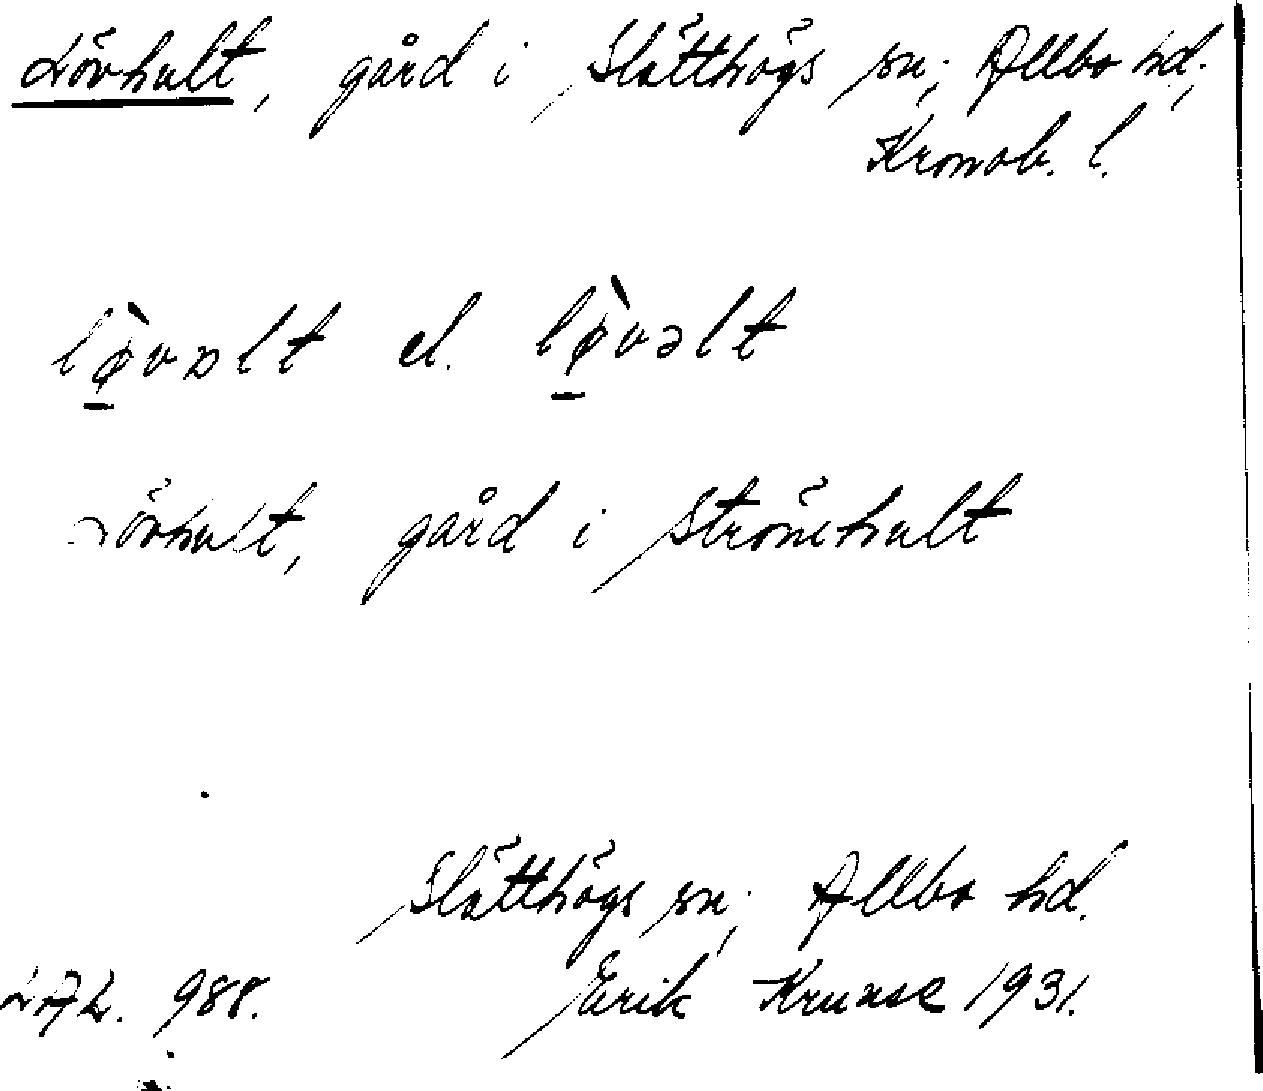 Lövhult, gård i Slätthögs sn; Allbo hd;
Kronob. l.
lø̀valt el. lø̀vəlt
Lövhult, gård i Strönehult
Slätthögs sn; Allbo hd.
LAL. 988. Erik Kruuse 1931.